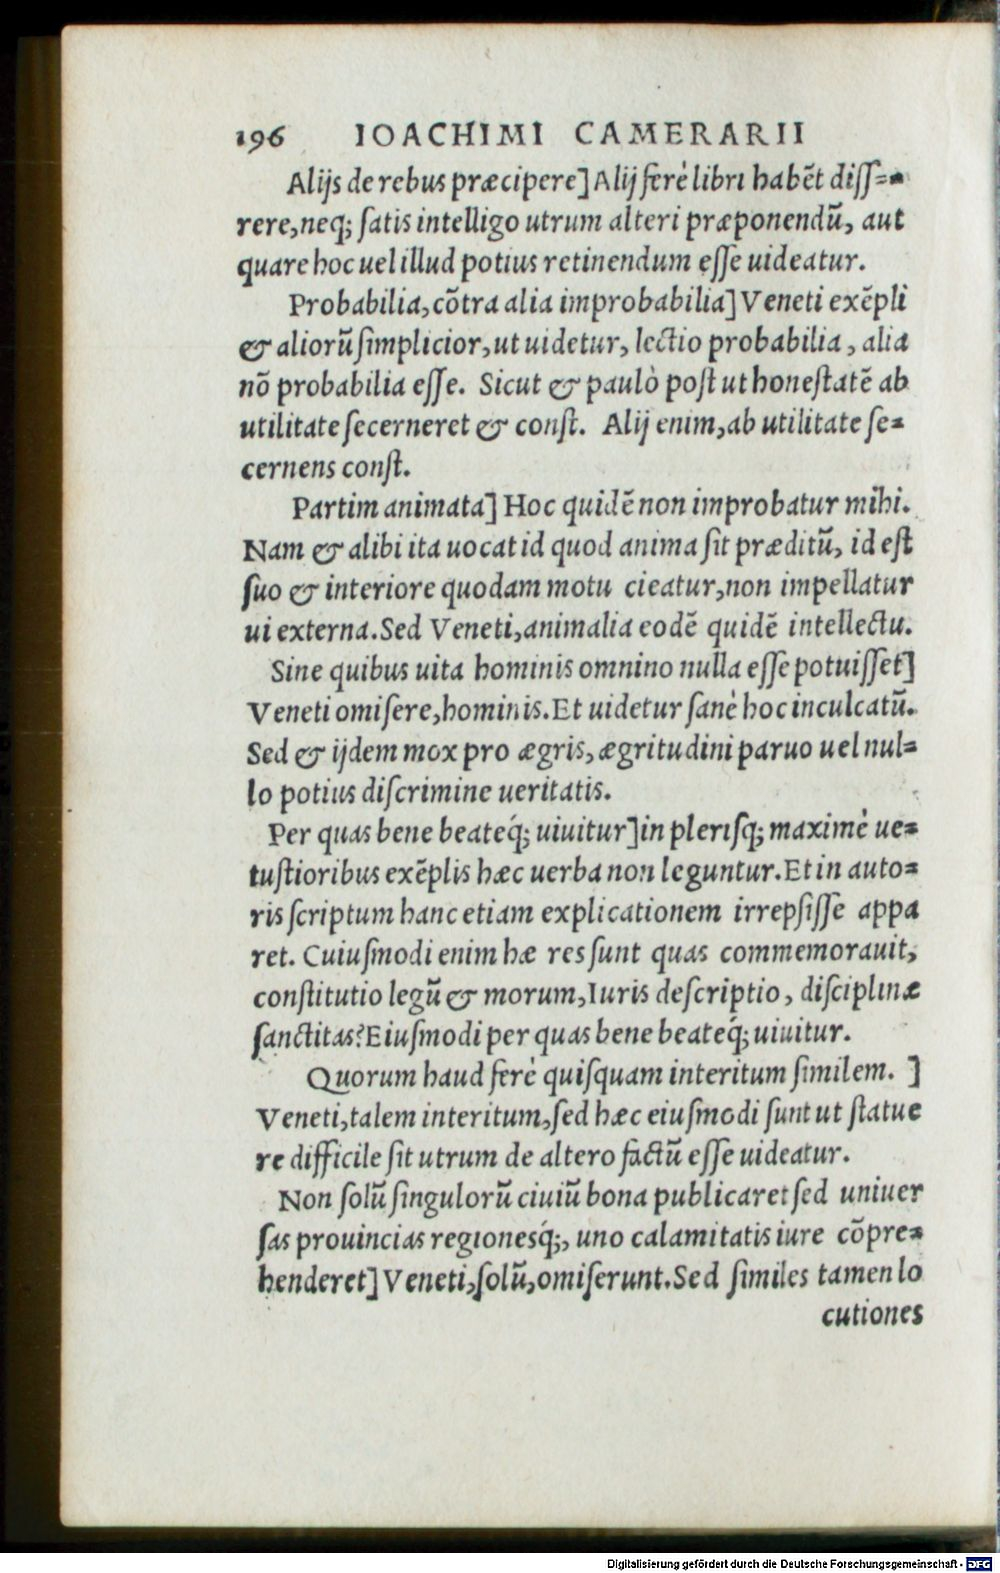 196 IOACHIMI CAMERARII
Alijs de rebus præcipere] Alij ferè libri habẽt disse=
rere, neq; satis intelligo utrum alteri præponendũ, aut
quare hoc uel illud potius retinendum esse uideatur.
Probabilia, cõtra alia improbabilia] Veneti exẽpli
& aliorũ simplicior, ut uidetur, lectio probabilia, alia
nõ probabilia esse. Sicut & paulò post ut honestatẽ ab
utilitate secerneret & const. Alij enim, ab utilitate se=
cernens const.
Partim animata] Hoc quidẽ non improbatur mihi.
Nam & alibi ita uocat id quod anima sit præditũ, id est
suo & interiore quodam motu cieatur, non impellatur
ui externa. Sed Veneti, animalia eodẽ quidẽ intellectu.
Sine quibus uita hominis omnino nulla esse potuisset]
Veneti omisere, hominis. Et uidetur sanè hoc inculcatũ.
Sed & ijdem mox pro ægris, ægritudini paruo uel nul=
lo potius discrimine ueritatis.
Per quas bene beateq́; uiuitur] in plerisq; maximè ue=
tustioribus exẽplis hæc uerba non leguntur. Et in auto=
ris scriptum hanc etiam explicationem irrepsisse appa
ret. Cuiusmodi enim hæ res sunt quas commemorauit,
constitutio legũ & morum, Iuris descriptio, disciplinæ
sanctitas? Eiusmodi per quas bene beateq́; uiuitur.
Quorum haud ferè quisquam interitum similem. ]
Veneti, talem interitum, sed hæc eiusmodi sunt ut statue
re difficile sit utrum de altero factũ esse uideatur.
Non solũ singulorũ ciuiũ bona publicaret sed uniuer
sas prouincias regionesq́;, uno calamitatis iure cõpre=
henderet] Veneti, solũ, omiserunt. Sed similes tamen lo
cutiones
Digitalisierung gefördert durch die Deutsche Forschungsgemeinschaft - DFG